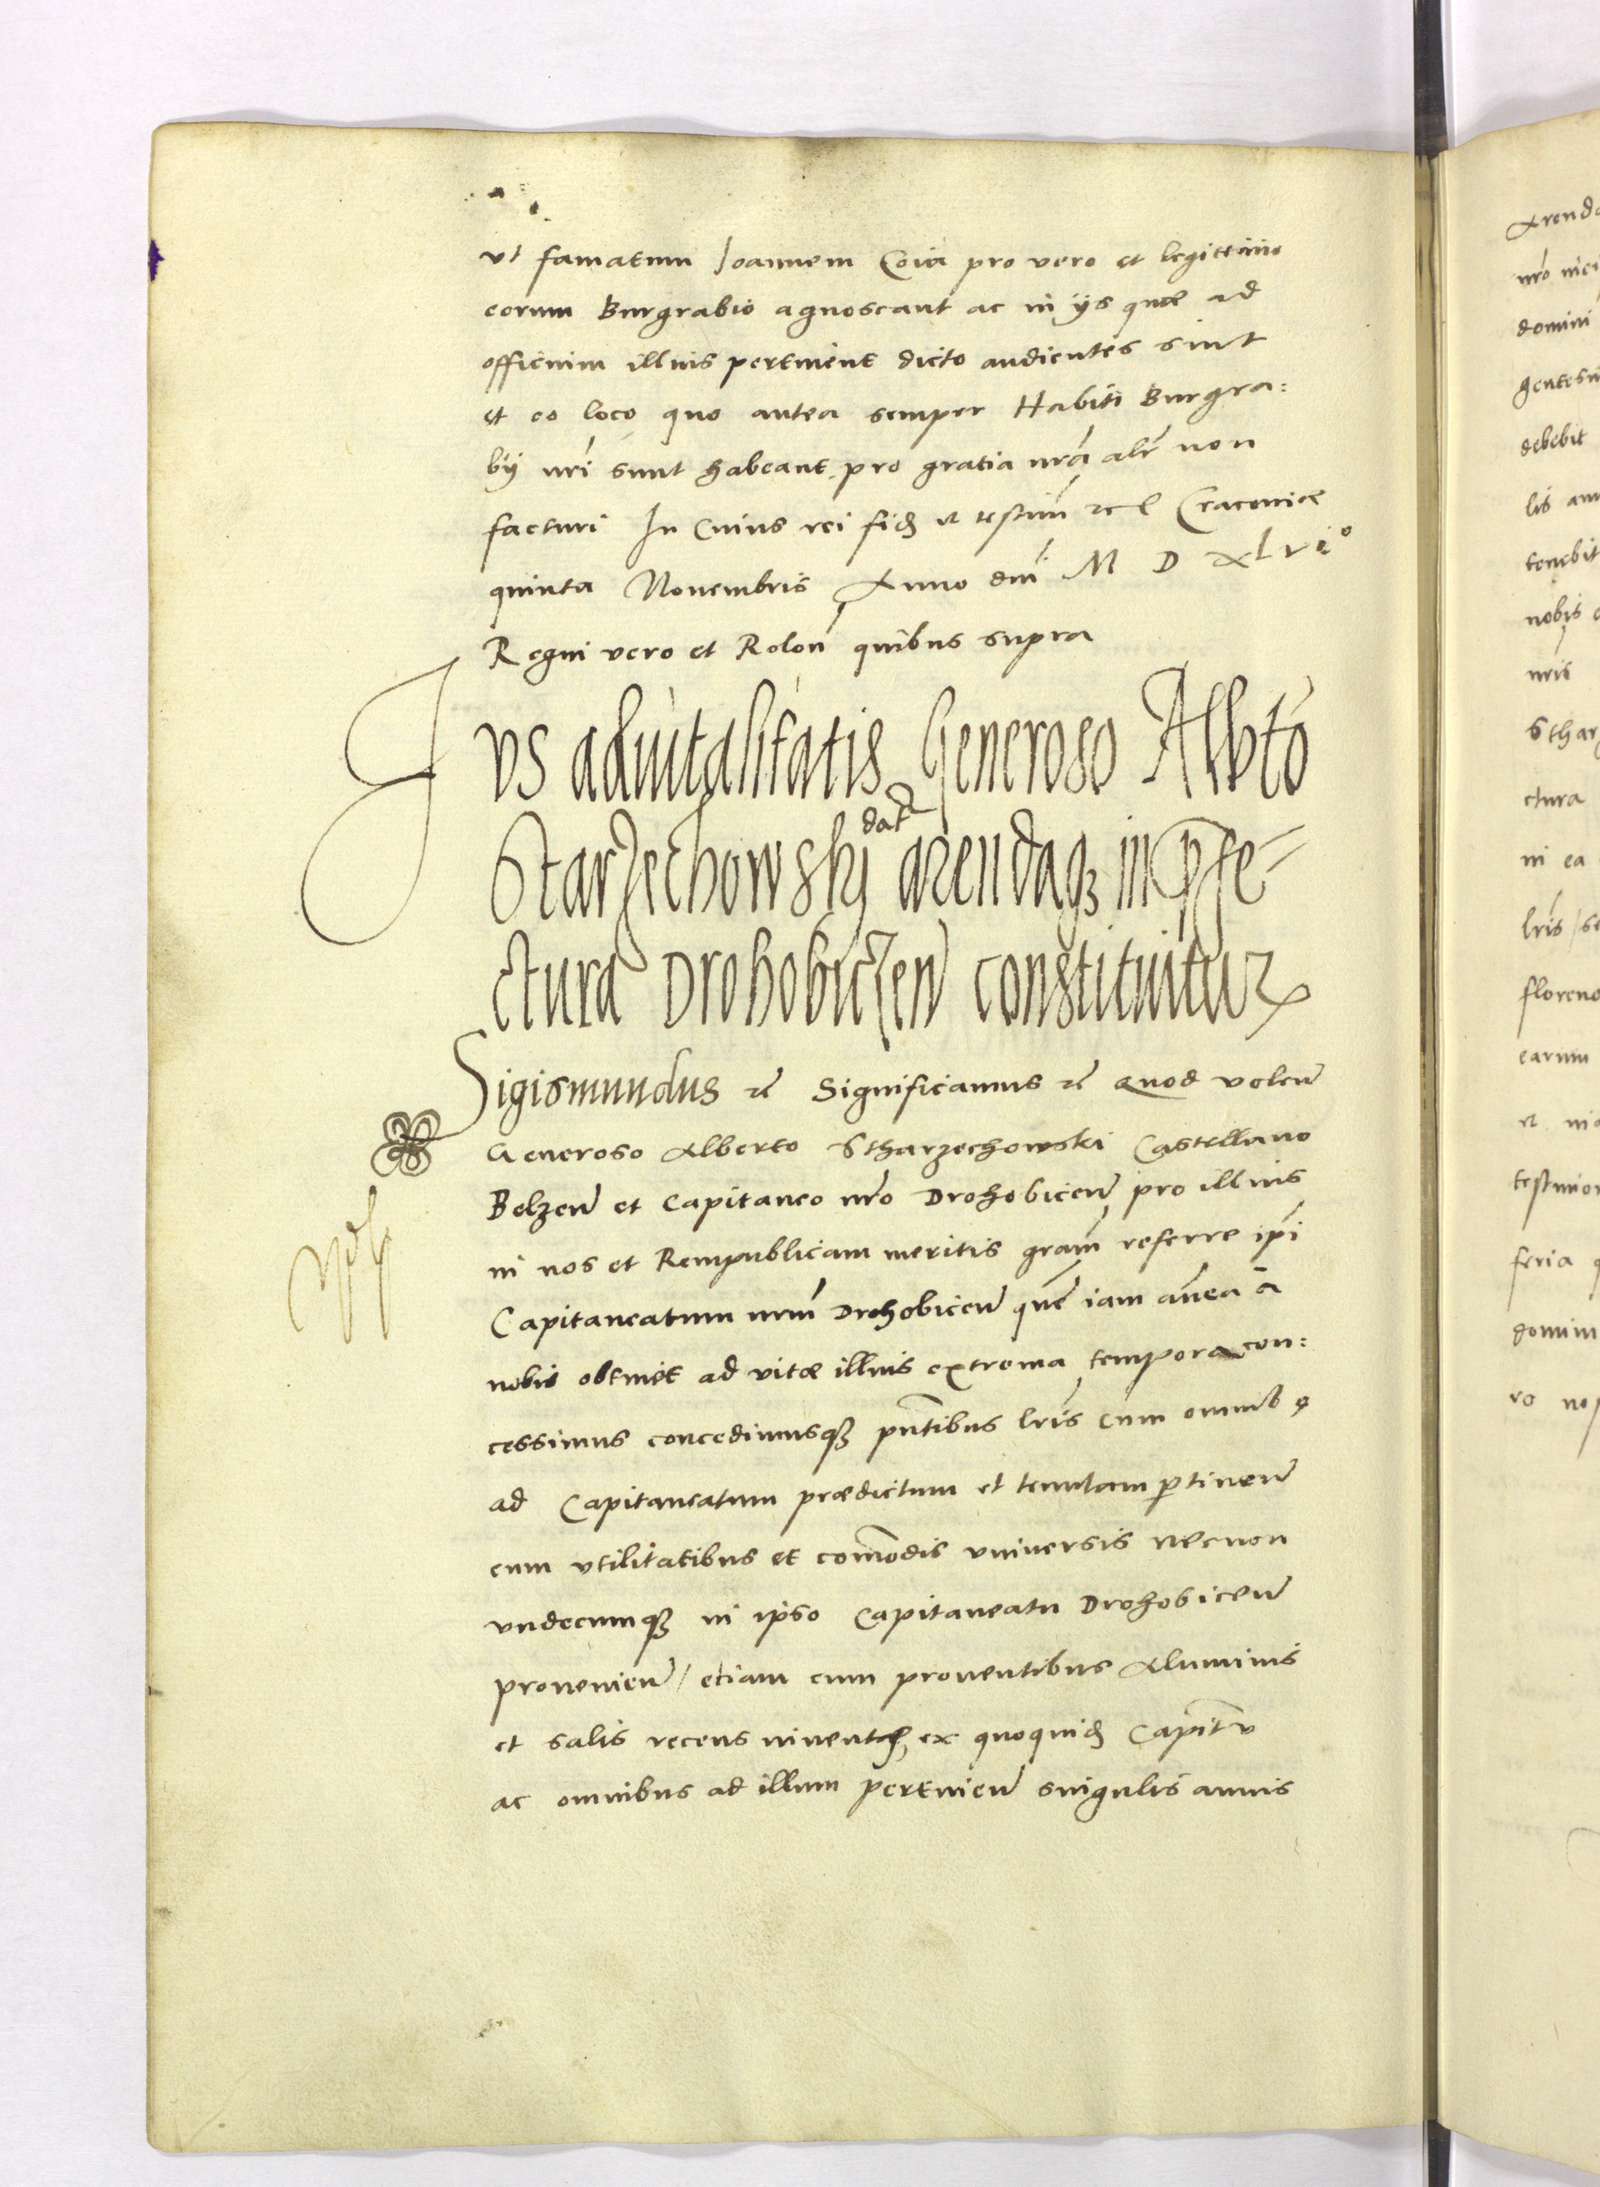 vt famatum Joannem Coia pro vero et legittimo
eorum Burgrabio agnoscant ac in ijs quæ ad
officium illius pertinent dicto audientes sint
et eo loco quo antea semper Habiti Burgra:
bij nri sunt habeant pro gratia nra alr non
facturi In Cuius rei fid et testim Cracouiæ
quinta Nouembris Anno dni M D XLVIo
Regni vero et Rolon quibus supra
Jvs aduitalitatis Generoso Albto
Starzechowskj datr arendaq in pfe-
ctura Drohobiczen constituitur
Sigismundus Significamus Quod volen
Generoso Alberto Stharzechowski Castellano
Belzen et Capitaneo nro Drohobicen pro illius
in nos et Rempublicam meritis gram referre ipi
Capitaneatum nrm Drohobicen que iam antea a
nobis obtinet ad vitæ illius extrema tempora con:
cessimus concedimusq pntibus lris cum omnib
ad Capitaneatum prædictum et tenutam ptinen
cum vtilitatibus et comodis vniuersis necnon
vndecumq in ipso Capitaneatu Drohobicen
prouenien / etiam cum prouentibus Aluminis
et salis recens inuent ex quoquid Capit
ac omnibus ad illum pertinen singulis annis
Arenda
nro
domini
debebit
lis
nobis
nris
Sthar
ctura
in ea
lris / se
floreno
earum
feria